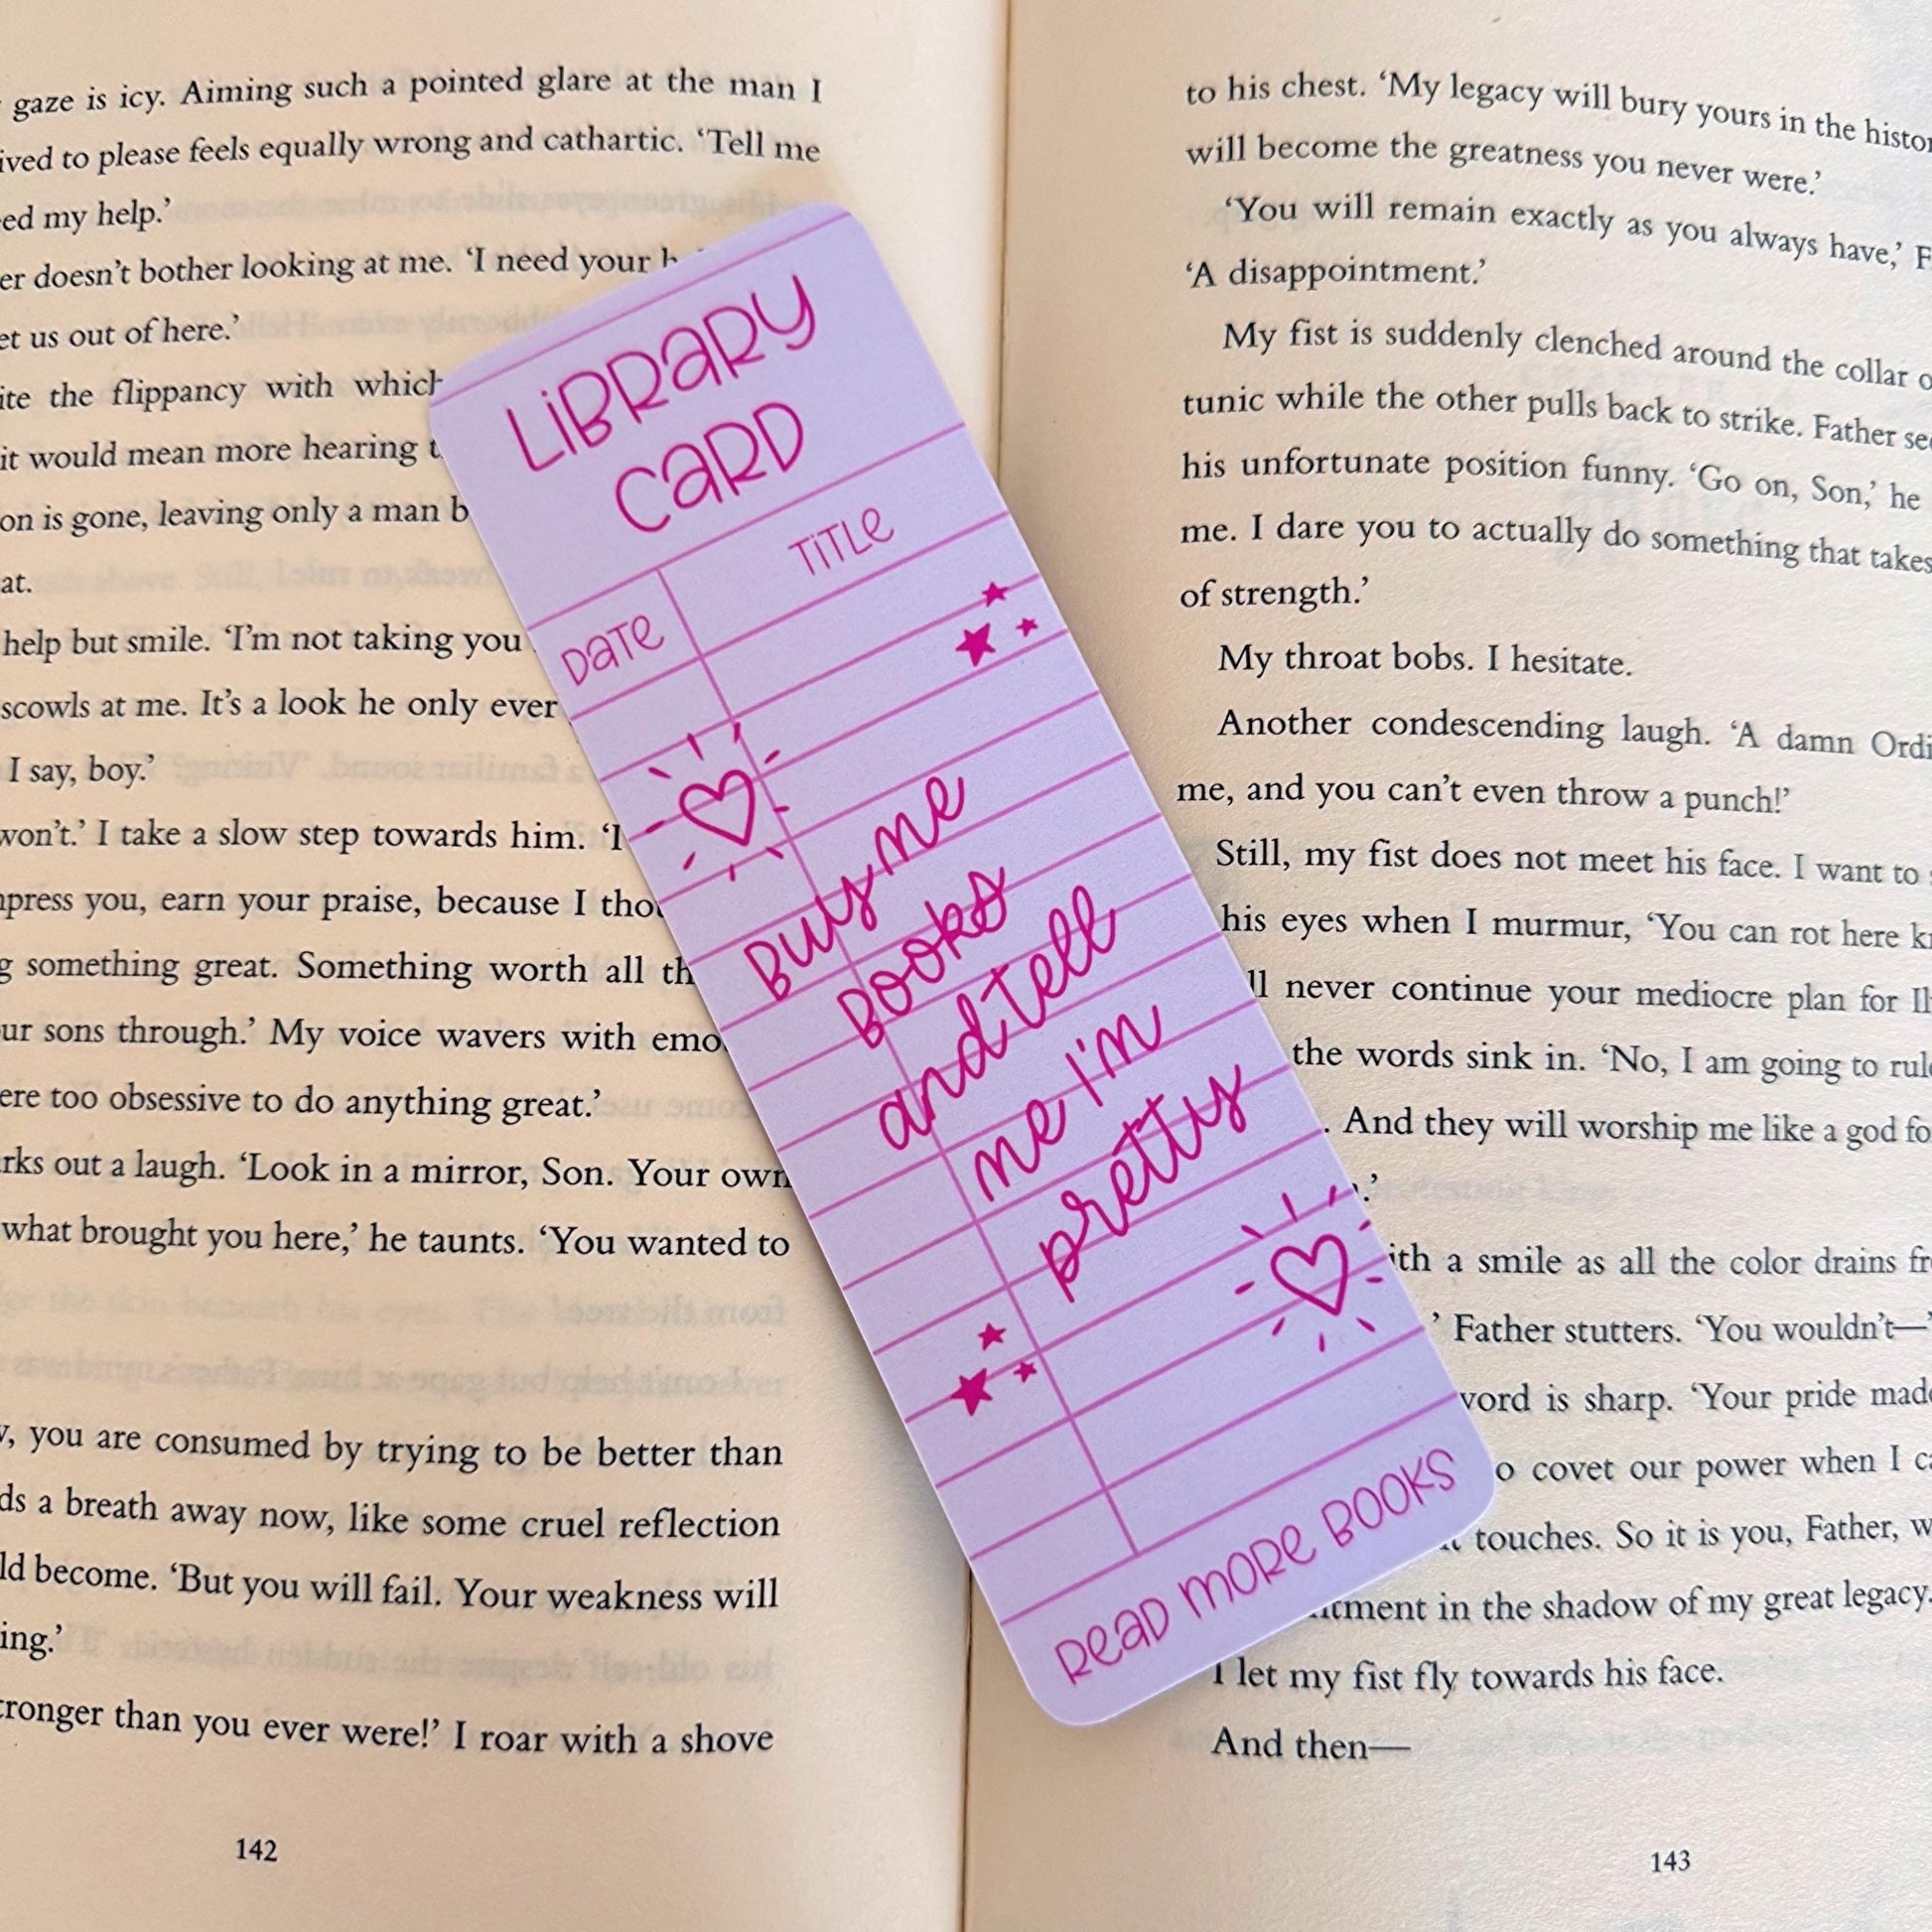 gaze is icy. Aiming such a pointed glare at the man I
to please feels equally wrong and cathartic. ‘Tell me
my help.’
doesn’t bother looking at me. ‘I need your
us out of here.’
the flippancy with which
it would mean more hearing
on is gone, leaving only a man
at.
help but smile. ‘I’m not taking you
scowls at me. It’s a look he only ever
I say, boy.’
won’t.’ I take a slow step towards him. ‘I
you, earn your praise, because I
something great. Something worth all
sons through.’ My voice wavers with
too obsessive to do anything great.’
out a laugh. ‘Look in a mirror, Son. Your own
what brought you here,’ he taunts. ‘You wanted to
you are consumed by trying to be better than
a breath away now, like some cruel reflection
become. ‘But you will fail. Your weakness will
ing.’
than you ever were!’ I roar with a shove
142
LIBRARY
CARD
DATE
TITLE
Buy me
Books
and tell
me I'm
pretty
READ MORE BOOKS
to his chest. ‘My legacy will bury yours in the
will become the greatness you never were.’
‘You will remain exactly as you always have,’
‘A disappointment.’
My fist is suddenly clenched around the collar
tunic while the other pulls back to strike. Father
his unfortunate position funny. ‘Go on, Son,’ he
me. I dare you to actually do something that takes
of strength.’
My throat bobs. I hesitate.
Another condescending laugh. ‘A damn
me, and you can’t even throw a punch!’
Still, my fist does not meet his face. I want to
his eyes when I murmur, ‘You can rot here
never continue your mediocre plan for
the words sink in. ‘No, I am going to
. And they will worship me like a god
.’
a smile as all the color drains
’ Father stutters. ‘You wouldn’t—’
is sharp. ‘Your pride
covet our power when I
touches. So it is you, Father,
in the shadow of my great legacy.
I let my fist fly towards his face.
And then—
143